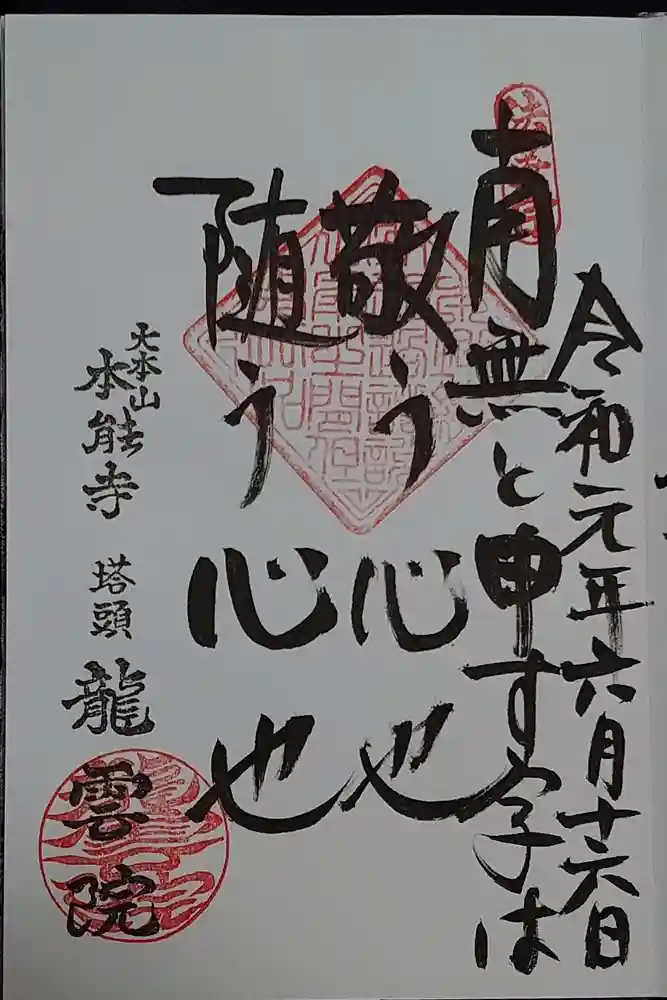 令和元年六月十六日
南無と申す字は
敬う心也
随う心也
大本山
本能寺 塔頭 龍雲院